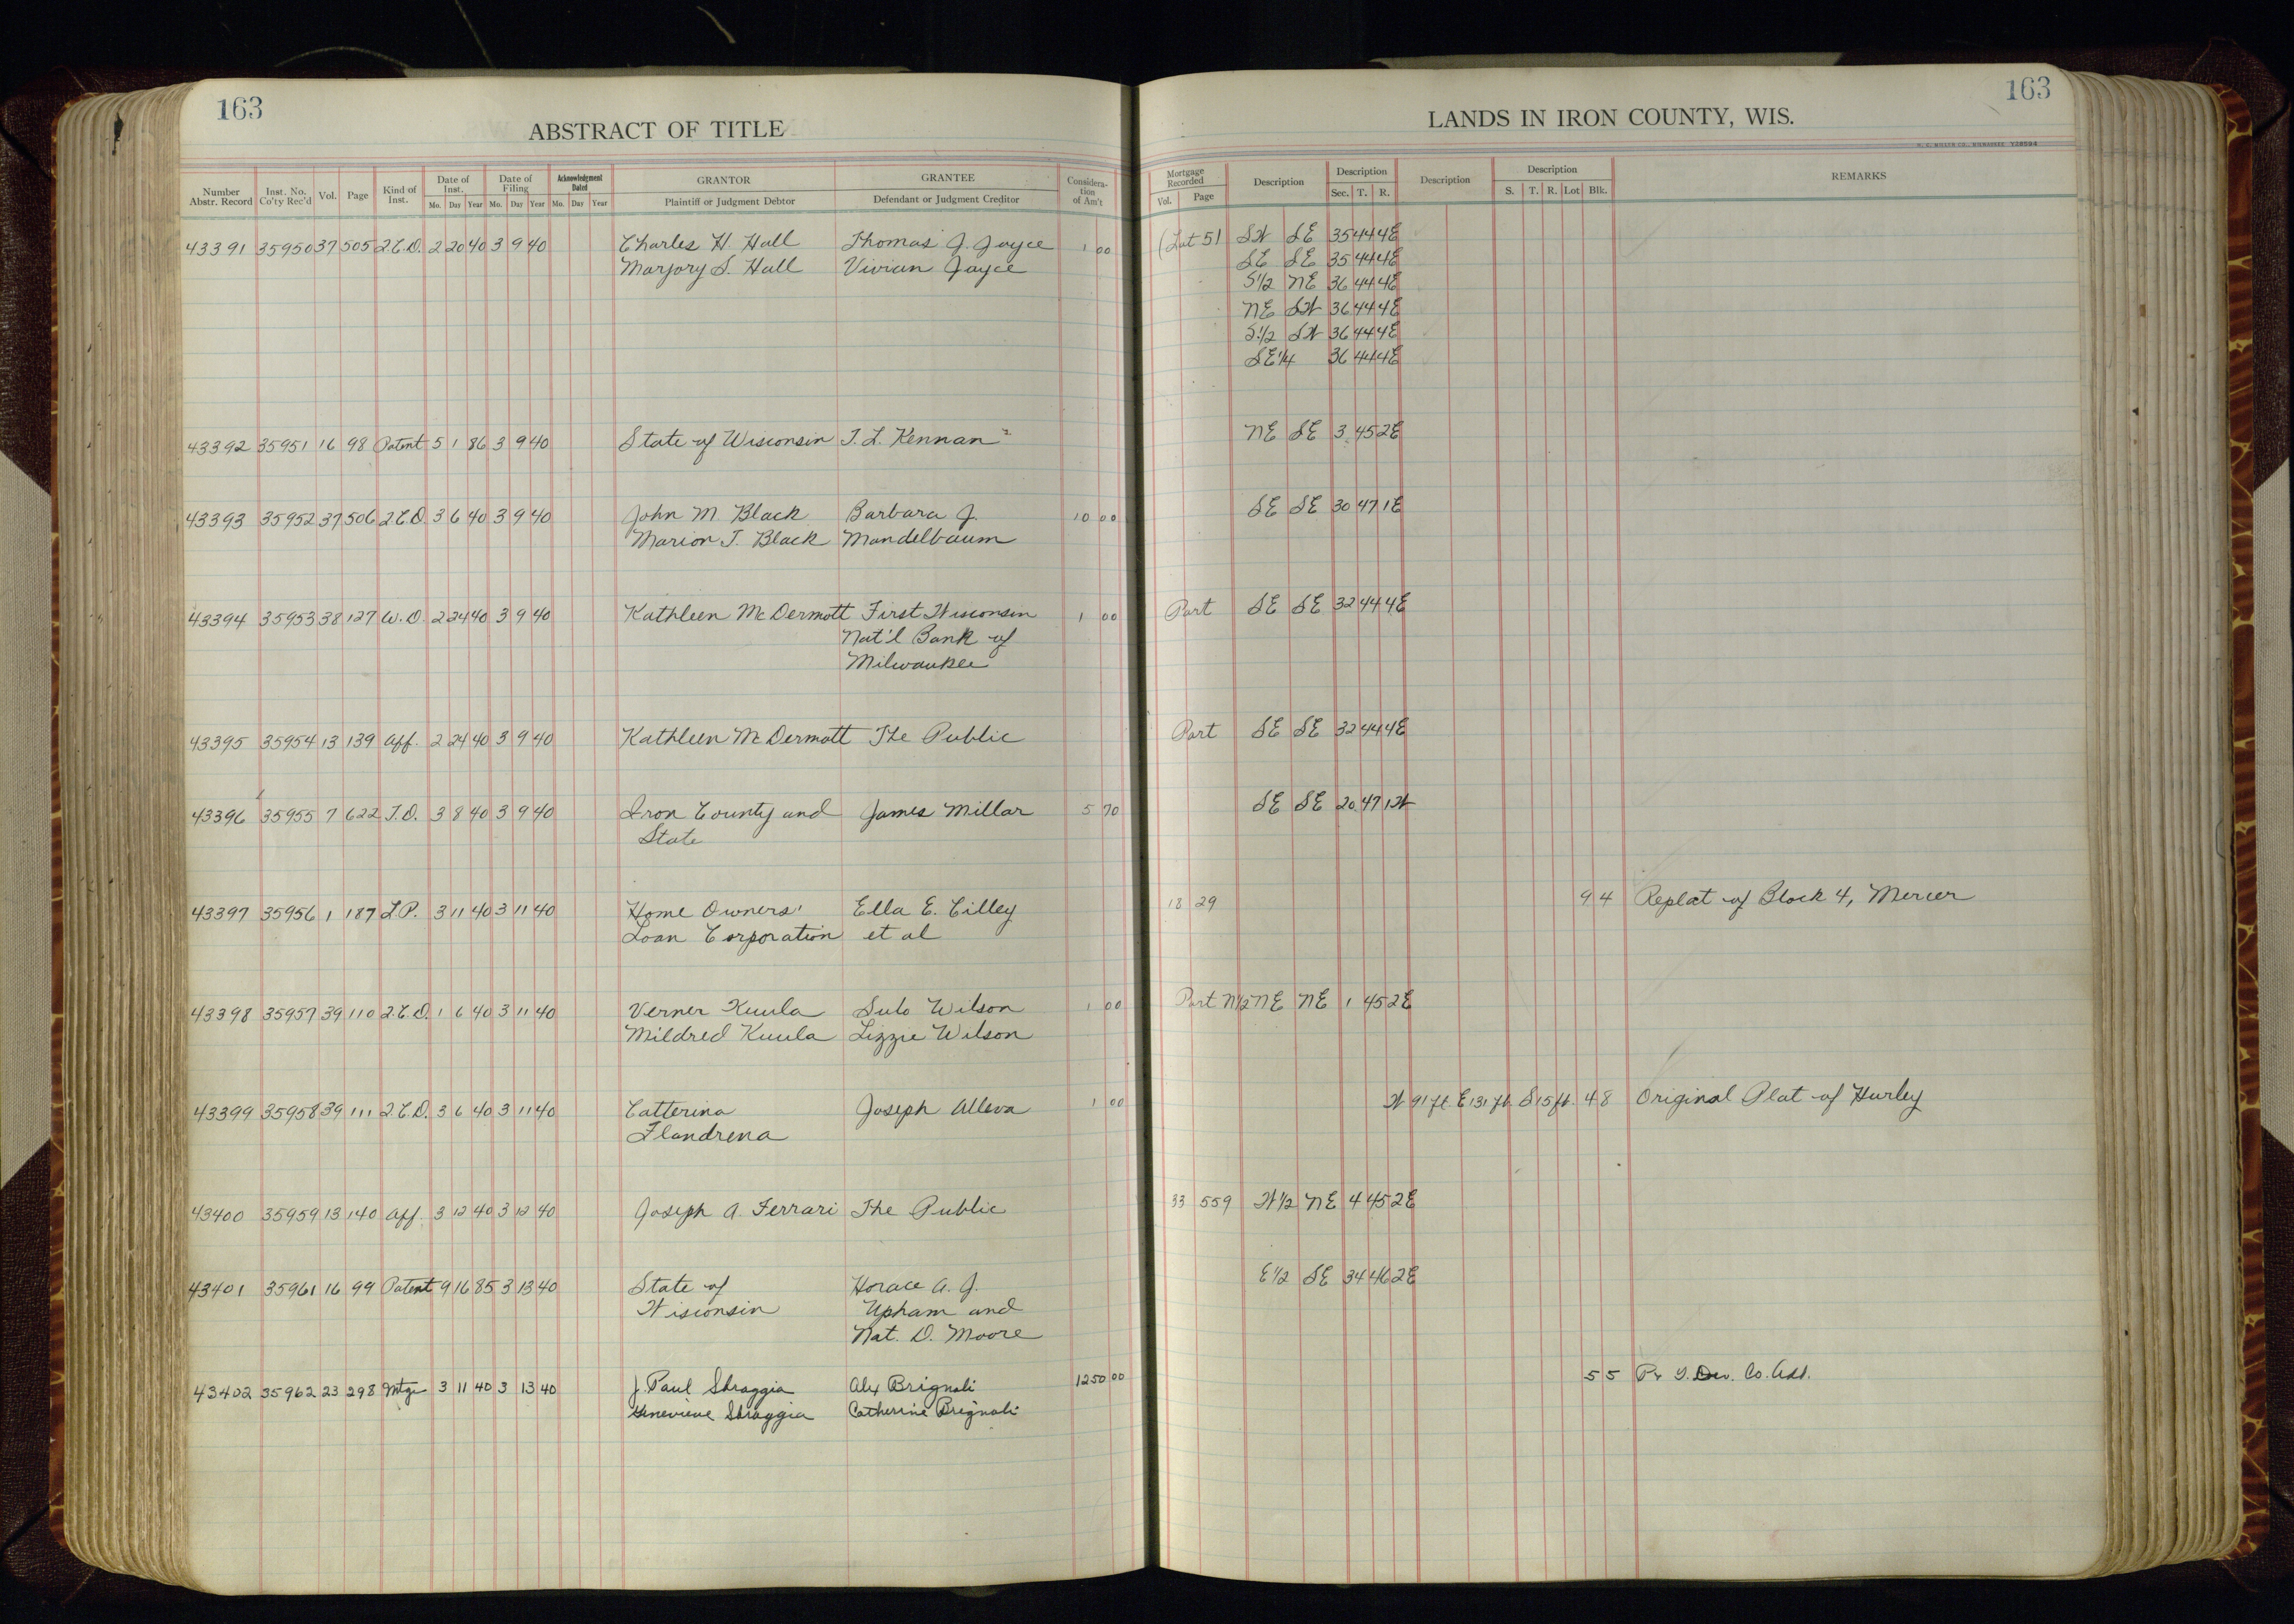 163
ABSTRACT OF TITLE
Number Abstr. Record | Inst. No. Co'ty Rec'd | Vol. | Page | Kind of Inst. | Date of Inst. Mo. Day Year | Date of Filing Mo. Day Year | Acknowledgment Dated Mo. Day Year | GRANTOR Plaintiff or Judgment Debtor | GRANTEE Defendant or Judgment Creditor | Considera-tion of Am't
43391 35950 37 505 Q.C.D. 2 20 40 3 9 40 Charles H. Hall Thomas J. Joyce 1 00
Marjory S. Hall Vivian Joyce
43392 35951 16 98 Patent 5 1 86 3 9 40 State of Wisconsin T. L. Kennan
43393 35952 37 506 Q.C.D. 3 6 40 3 9 40 John M. Black Barbara J. 10 00
Marion T. Black Mandelbaum
43394 35953 38 127 W.D. 2 24 40 3 9 40 Kathleen McDermott First Wisconsin 1 00
Nat'l Bank of
Milwaukee
43395 35954 13 139 Aff. 2 24 40 3 9 40 Kathleen McDermott The Public
43396 35955 7 622 T.D. 3 8 40 3 9 40 Iron County and James Millar 5 70
State
43397 35956 1 187 L.P. 3 11 40 3 11 40 Home Owners' Ella E. Cilley
Loan Corporation et al
43398 35957 39 110 Q.C.D. 1 6 40 3 11 40 Verner Kuula Sulo Wilson 1 00
Mildred Kuula Lizzie Wilson
43399 35958 39 111 Q.C.D. 3 6 40 3 11 40 Catterina Joseph Alleva 1 00
Flandrena
43400 35959 13 140 Aff. 3 12 40 3 12 40 Joseph A. Ferrari The Public
43401 35961 16 99 Patent 9 16 85 3 13 40 State of Horace A. J.
Wisconsin Upham and
Nat. D. Moore
43402 35962 23 298 Mtge 3 11 40 3 13 40 J. Paul Sbraggia Alex Brignali 1250 00
Genevieve Sbraggia Catherine Brignali
163
LANDS IN IRON COUNTY, WIS.
H. C. MILLER CO., MILWAUKEE
Mortgage Recorded Vol. Page | Description | Description Sec. T. R. | Description | Description S. T. R. Lot Blk. | REMARKS
(Lot 5) SW SE 35 44 4E
SE SE 35 44 4E
S1/2 NE 36 44 4E
NE SW 36 44 4E
S1/2 SW 36 44 4E
SE1/4 36 44 4E
NE SE 3 45 2E
SE SE 30 47 1E
Part SE SE 32 44 4E
Part SE SE 32 44 4E
SE SE 20 47 1W
18 29 9 4 Replat of Block 4, Mercer
Part N1/2 NE NE 1 45 2E
W 91 ft. E 131 ft. S 15 ft. 4 8 Original Plat of Hurley
33 559 W1/2 NE 4 45 2E
E1/2 SE 34 46 2E
5 5 Dev. Co. Add.